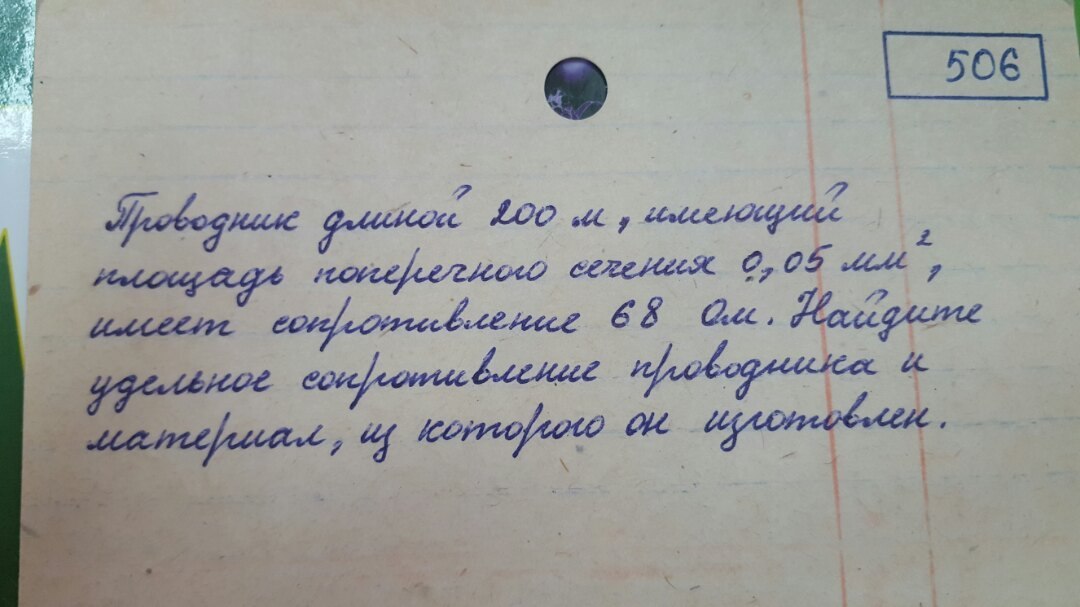 506
Проводник длиной 200 м, имеющий
площадь поперечного сечения 0,05 мм²,
имеет сопротивление 68 Ом. Найдите
удельное сопротивление проводника и
материал, из которого он изготовлен.